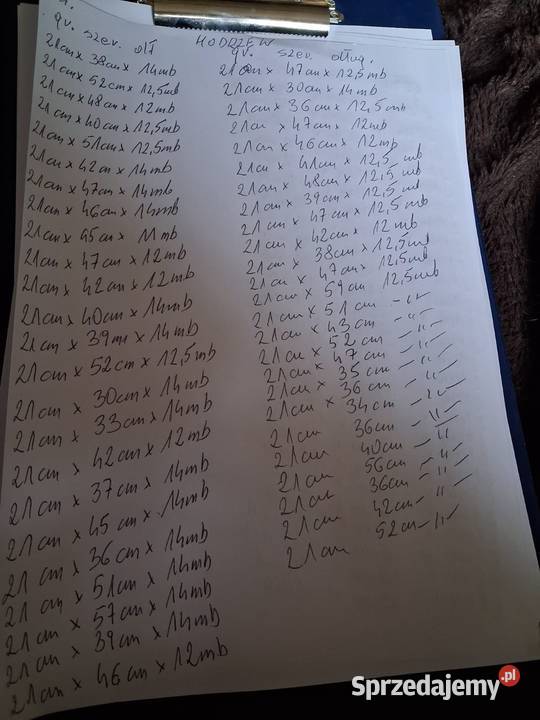 gr. szer. dł
21cm x 38cm x 14mb
21cm x 52cm x 12,5mb
21cm x 48cm x 12mb
21cm x 40cm x 12,5mb
21cm x 51cm x 12,5mb
21cm x 42cm x 14mb
21cm x 47cm x 14mb
21cm x 46cm x 14mb
21cm x 45cm x 11mb
21cm x 47cm x 12mb
21cm x 42cm x 12mb
21cm x 40cm x 14mb
21cm x 39cm x 14mb
21cm x 52cm x 12,5mb
21cm x 30cm x 14mb
21cm x 33cm x 14mb
21cm x 42cm x 12mb
21cm x 37cm x 14mb
21cm x 45cm x 14mb
21cm x 36cm x 14mb
21cm x 51cm x 14mb
21cm x 57cm x 14mb
21cm x 39cm x 14mb
21cm x 46cm x 12mb
MODRZEW
gr. szer. dług.
21cm x 47cm x 12,5mb
21cm x 30cm x 14mb
21cm x 36cm x 12,5mb
21cm x 47cm x 12mb
21cm x 46cm x 12mb
21cm x 41cm x 12,5mb
21cm x 48cm x 12,5mb
21cm x 39cm x 12,5mb
21cm x 47cm x 12,5mb
21cm x 42cm x 12mb
21cm x 38cm x 12,5mb
21cm x 47cm 12,5mb
21cm x 59cm 12,5mb
21cm x 51cm -"-
21cm x 43cm -"-
21cm x 52cm -"-
21cm x 47cm -"-
21cm x 35cm -"-
21cm x 36cm -"-
21cm x 34cm -"-
21cm 36cm -"-
21cm 40cm -"-
21cm 56cm -"-
21cm 36cm -"-
21cm 42cm -"-
21cm 52cm -"-
Sprzedajemy.pl